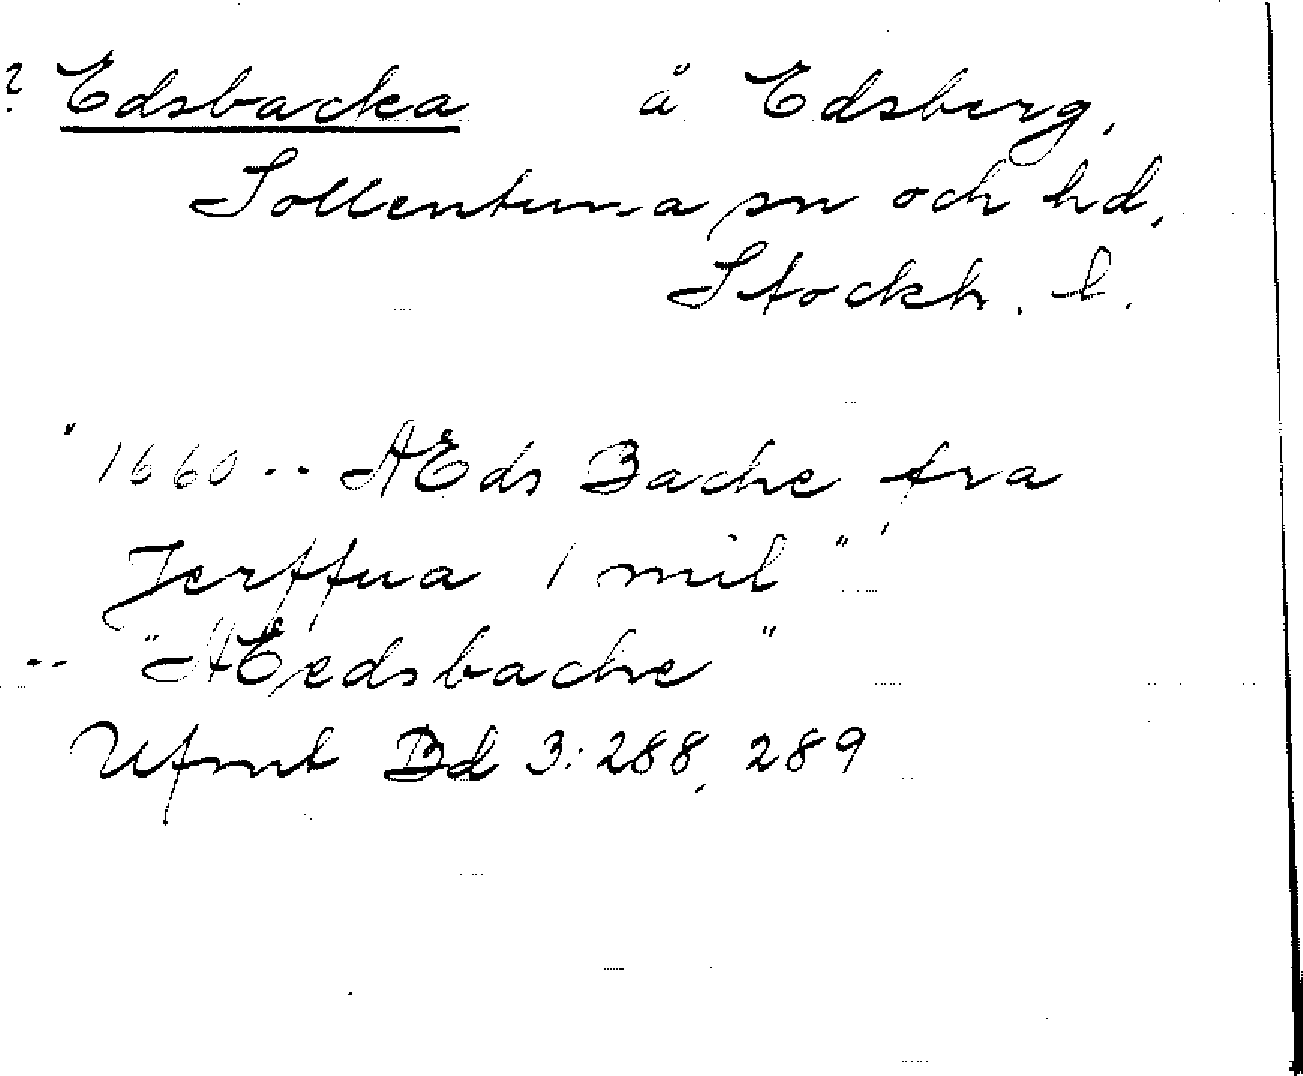 ? Edsbacka å Edsberg,
Sollentuna sn och hd,
Stockh. l.
"1660 -- ÆEds Bache fra
Jerffua 1 mil"
-- "ÆEedsbache"
Ufmt Bd 3:288, 289